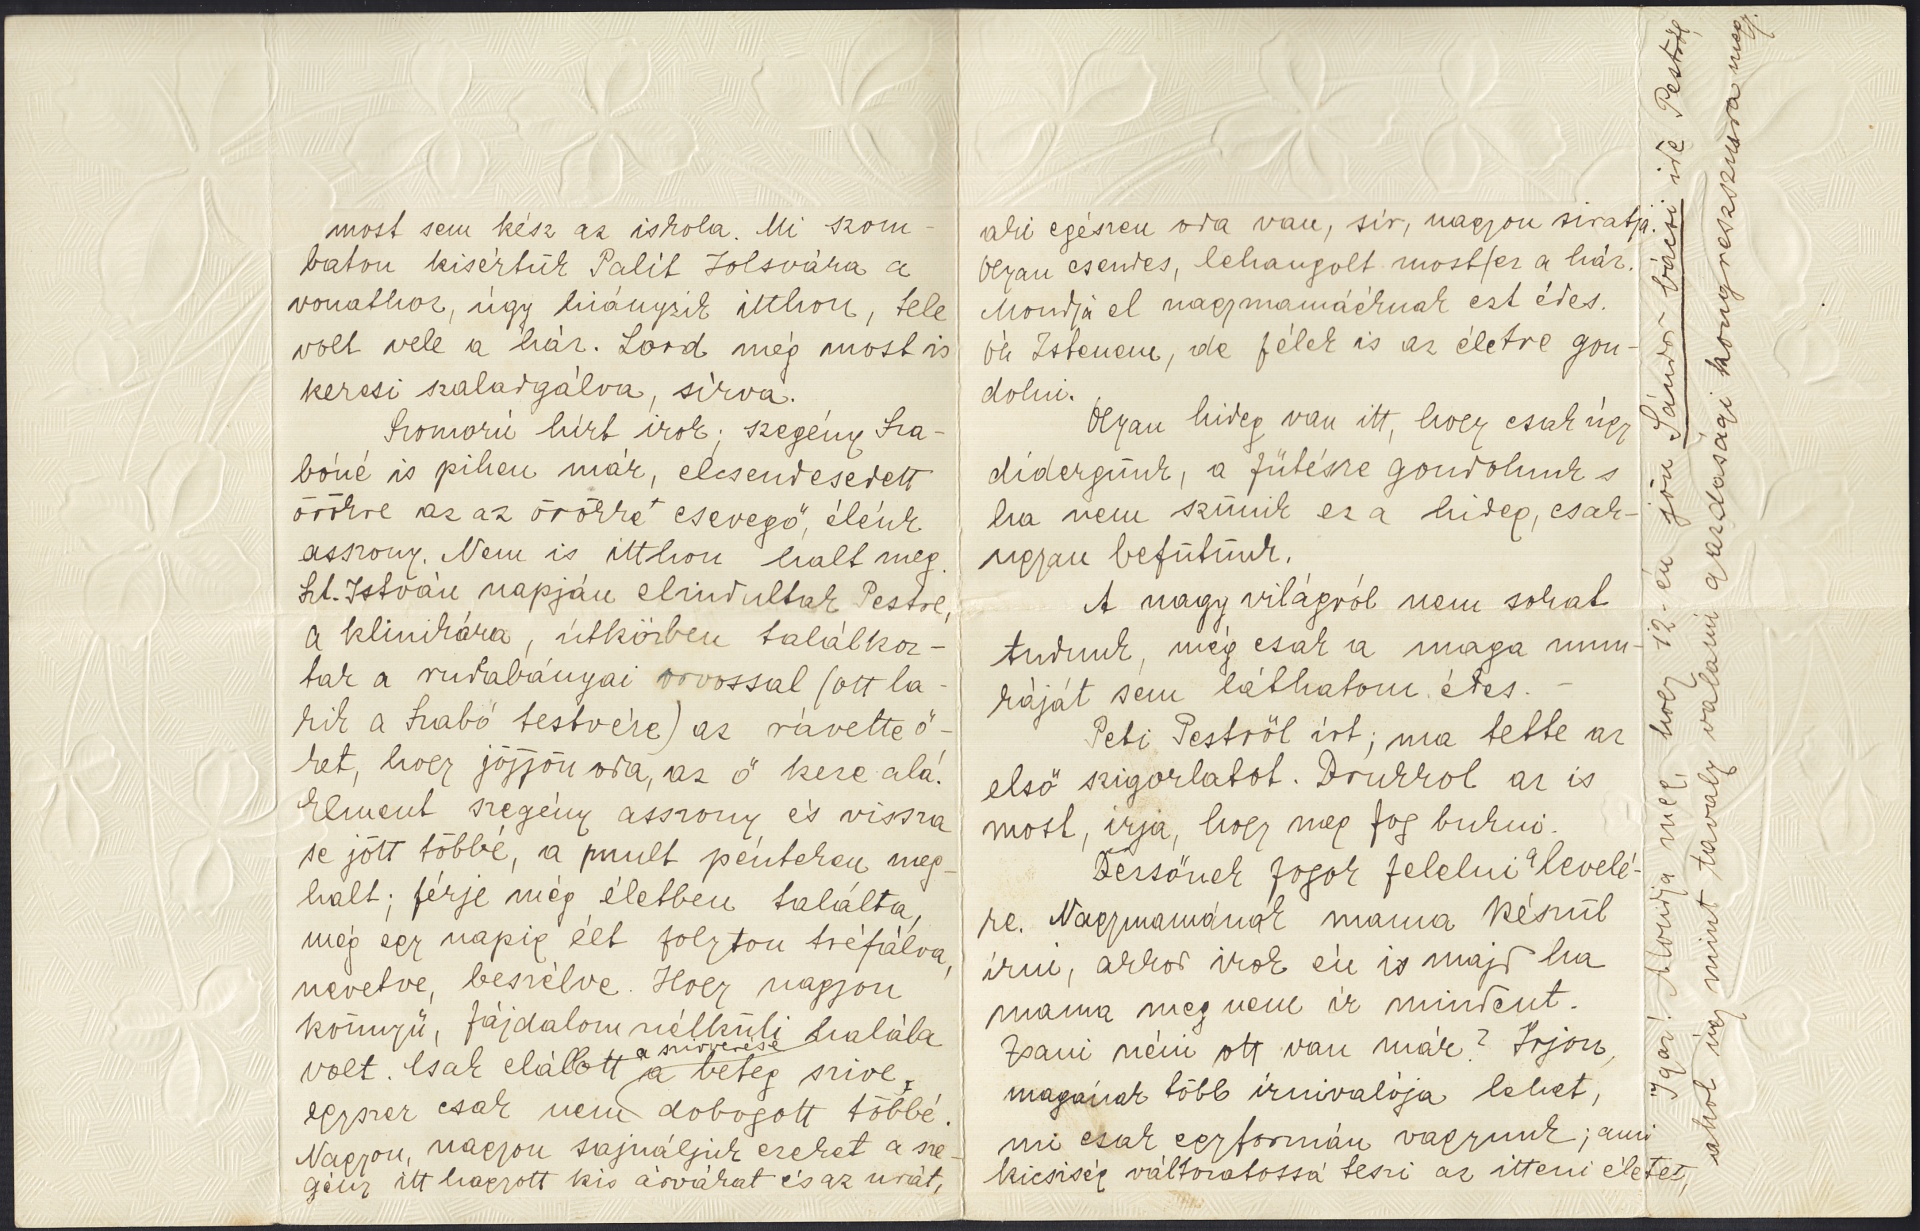 most sem kész az iskola. Mi szom-
baton kisértük Palit Jolsvára a
vonathoz, úgy hiányzik itthon, tele
volt vele a ház. Lord még most is
keresi szaladgálva, sírva.
Szomorú hírt irok; szegény Sza-
bóné is pihen már, elcsendesedett
örökre az az örökké csevegő, élénk
asszony. Nem is itthon halt meg.
Szt. István napján elindultak Pestre,
a klinikára, útközben találkoz-
tak a rudabányai orvossal (ott la-
kik a Szabó testvére) az rávette ő-
ket, hogy jöjjön oda, az ő keze alá.
Elment szegény asszony és vissza
se jött többé, a mult pénteken meg-
halt; férje még életben találta,
még egy napig élt folyton tréfálva,
nevetve, beszélve. Hogy nagyon
könnyű, fájdalom nélküli halála
volt. Csak elállott a szívverése a beteg szive,
egyszer csak nem dobogott többé.
Nagyon, nagyon sajnáljuk ezeket a sze-
gény itt hagyott kis árvákat és az urát,
aki egészen oda van, sír, nagyon siratja.
Olyan csendes, lehangolt most ez a ház.
Mondja el nagymamáéknak ezt édes.
Óh Istenem, de félek is az életre gon-
dolni.
Olyan hideg van itt, hogy csak úgy
didergünk, a fűtésre gondolunk s
ha nem szünik ez a hideg, csak-
ugyan befütünk.
A nagy világról nem sokat
tudunk, még csak a maga mun-
káját sem láthatom édes. –
Peti Pestről írt; ma tette az
első szigorlatot. Drukkol az is
most, írja, hogy meg fog bukni.
Dezsőnek fogok felelni a levelé-
re. Nagymamának mama készül
írni, akkor irok én is majd ha
mama meg nem ír mindent.
Zsani néni ott van már? Írjon,
magának több írnivalója lehet,
mi csak egyformán vagyunk; ami
kicsiség változatossá teszi az itteni életet,
Igaz! Mondja meg, hogy 12-én jön Sándor bácsi ide Pestről,
ahol úgy mint tavaly valami gazdasági kongresszusa meg.